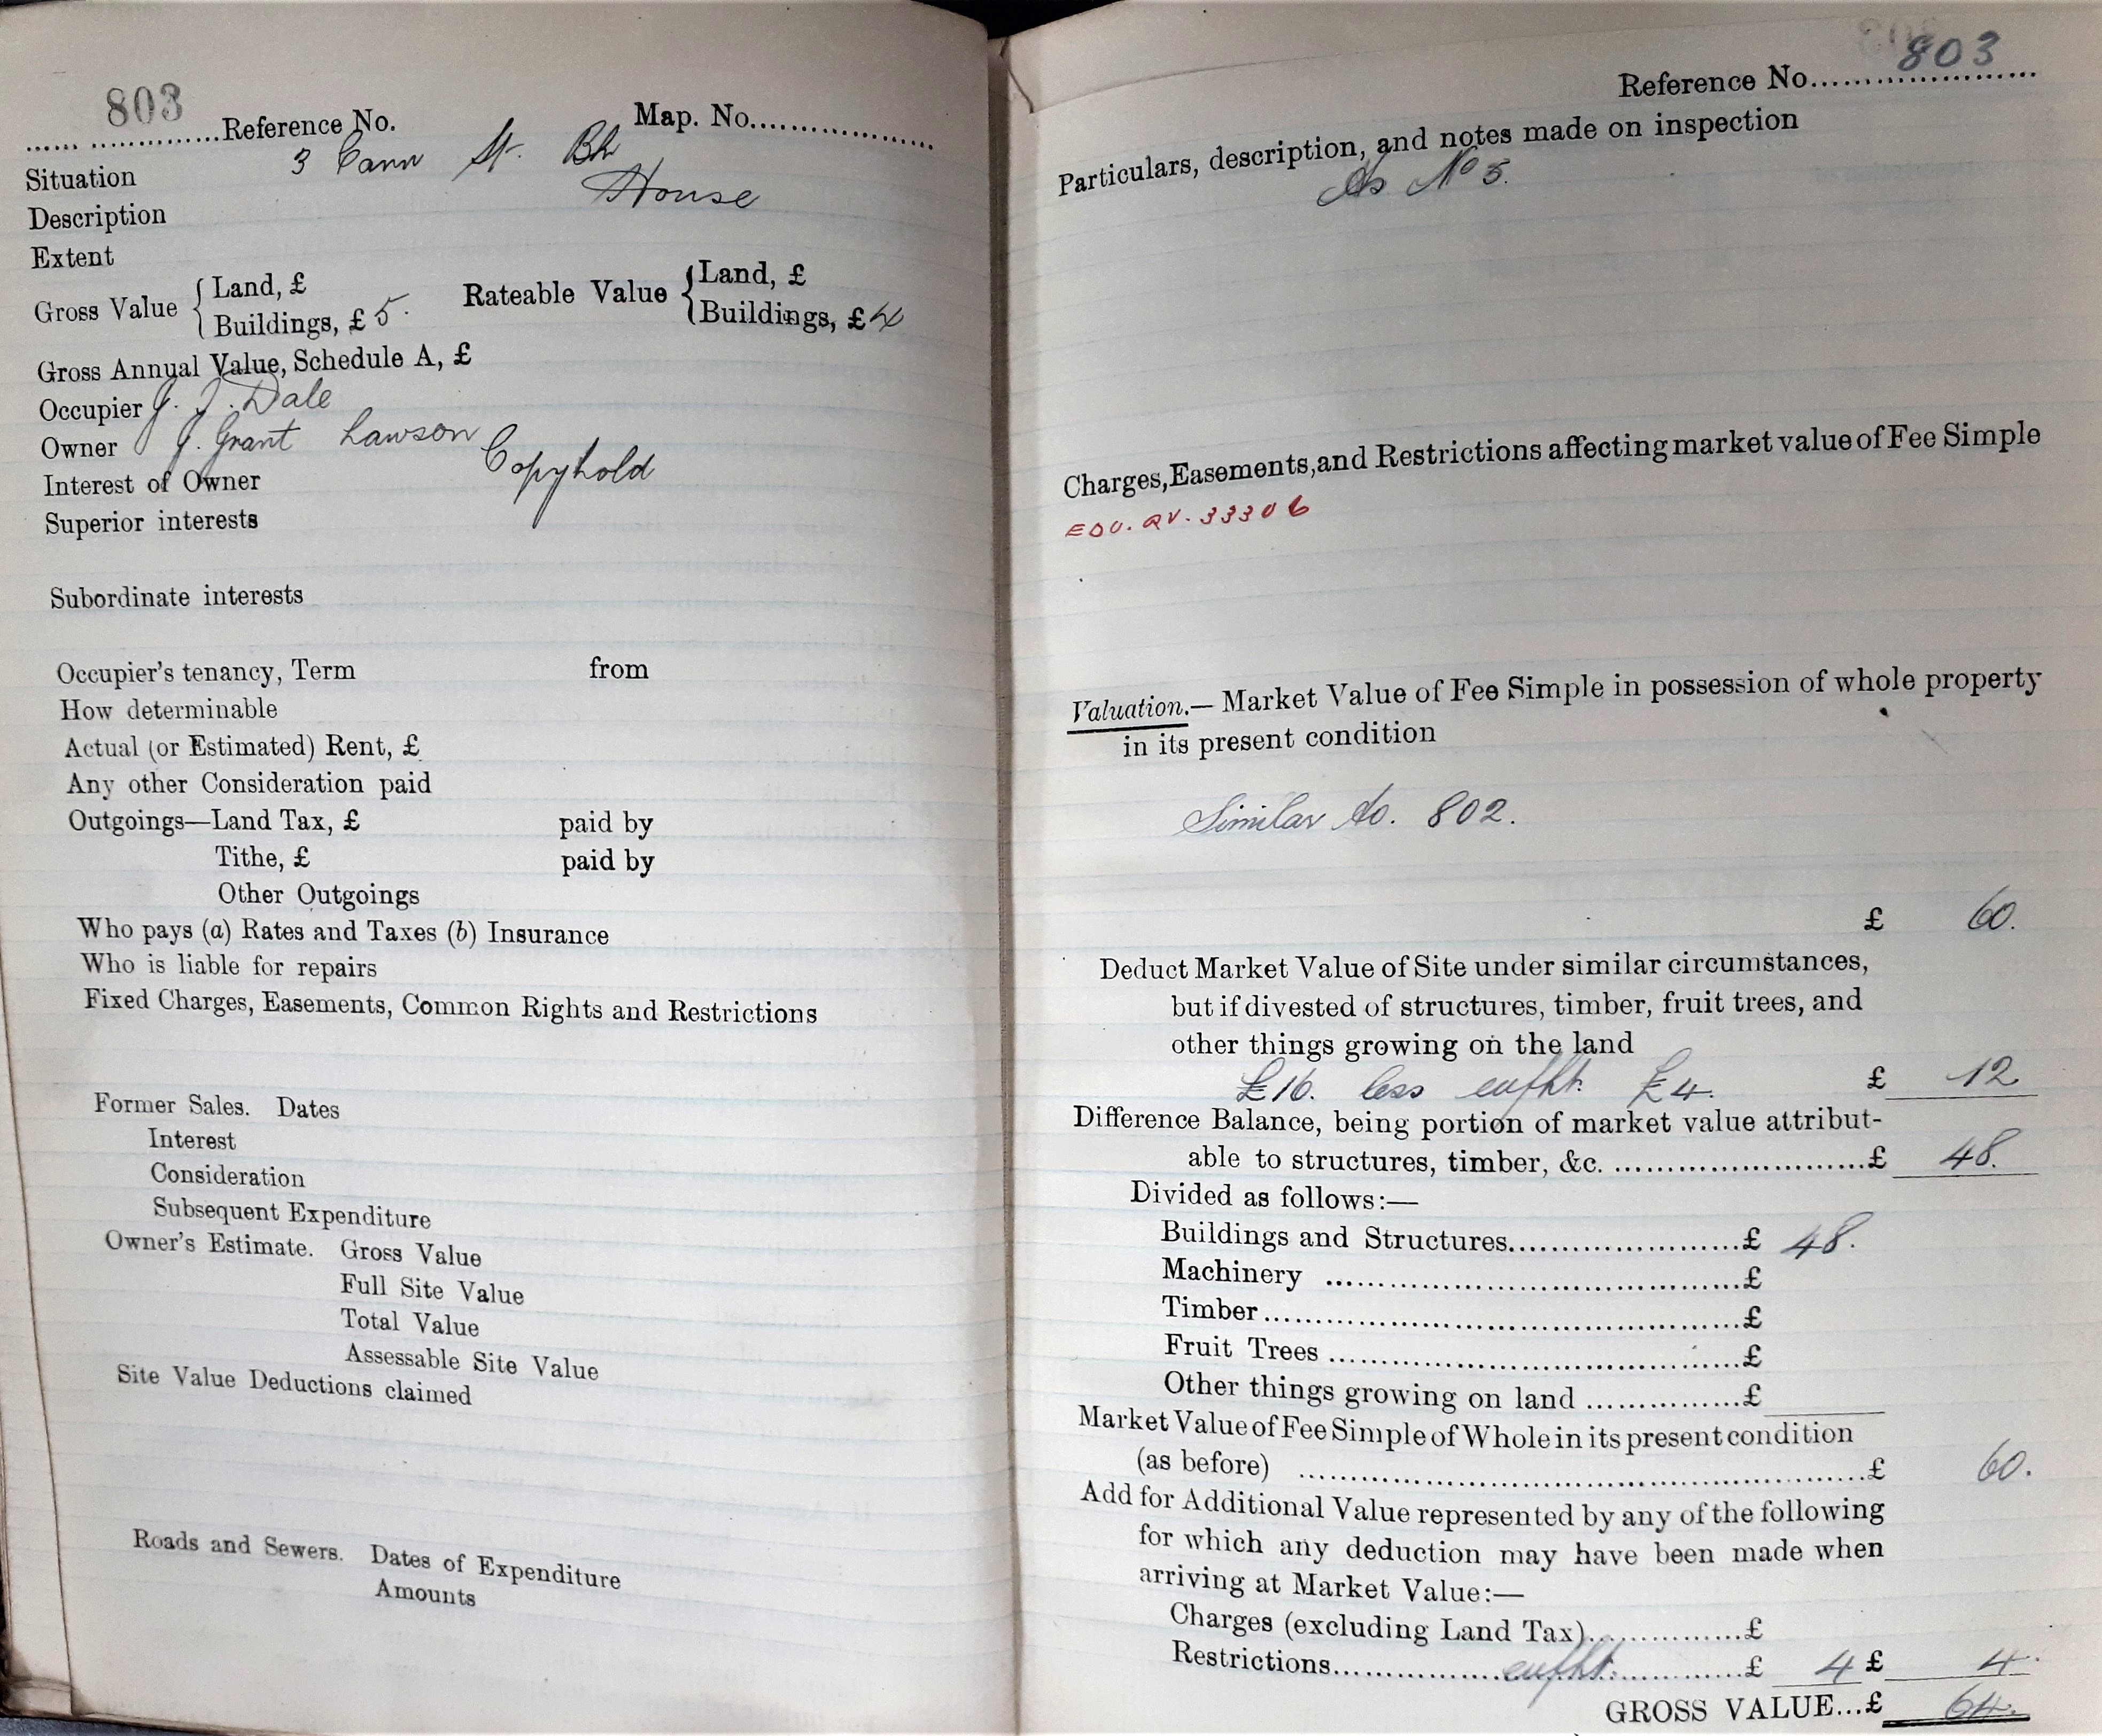 803
...... ..............Reference No. Map. No.....................
Situation 3 Cann St. Bh
Description House
Extent
Gross Value { Land, £ Rateable Value { Land, £
Buildings, £ 5. Buildings, £ 4
Gross Annual Value, Schedule A, £
Occupier J. J. Dale
Owner J. Grant Lawson
Interest of Owner Copyhold
Superior interests
Subordinate interests
Occupier's tenancy, Term from
How determinable
Actual (or Estimated) Rent, £
Any other Consideration paid
Outgoings—Land Tax, £ paid by
Tithe, £ paid by
Other Outgoings
Who pays (a) Rates and Taxes (b) Insurance
Who is liable for repairs
Fixed Charges, Easements, Common Rights and Restrictions
Former Sales. Dates
Interest
Consideration
Subsequent Expenditure
Owner's Estimate. Gross Value
Full Site Value
Total Value
Assessable Site Value
Site Value Deductions claimed
Roads and Sewers. Dates of Expenditure
Amounts
Reference No. 803
Particulars, description, and notes made on inspection
As No 5.
Charges, Easements, and Restrictions affecting market value of Fee Simple
EDU. QV. 33306
Valuation.— Market Value of Fee Simple in possession of whole property
in its present condition
Similar to. 802.
£ 60.
Deduct Market Value of Site under similar circumstances,
but if divested of structures, timber, fruit trees, and
other things growing on the land
£16. less enfht. £4. £ 12
Difference Balance, being portion of market value attribut-
able to structures, timber, &c. ..........................£ 48.
Divided as follows:—
Buildings and Structures........................£ 48.
Machinery ..........................................£
Timber................................................£
Fruit Trees ..........................................£
Other things growing on land ...............£
Market Value of Fee Simple of Whole in its present condition
(as before) ............................................................£ 60.
Add for Additional Value represented by any of the following
for which any deduction may have been made when
arriving at Market Value:—
Charges (excluding Land Tax)...............£
Restrictions................enfht...............£ 4 £ 4.
GROSS VALUE...£ 64.